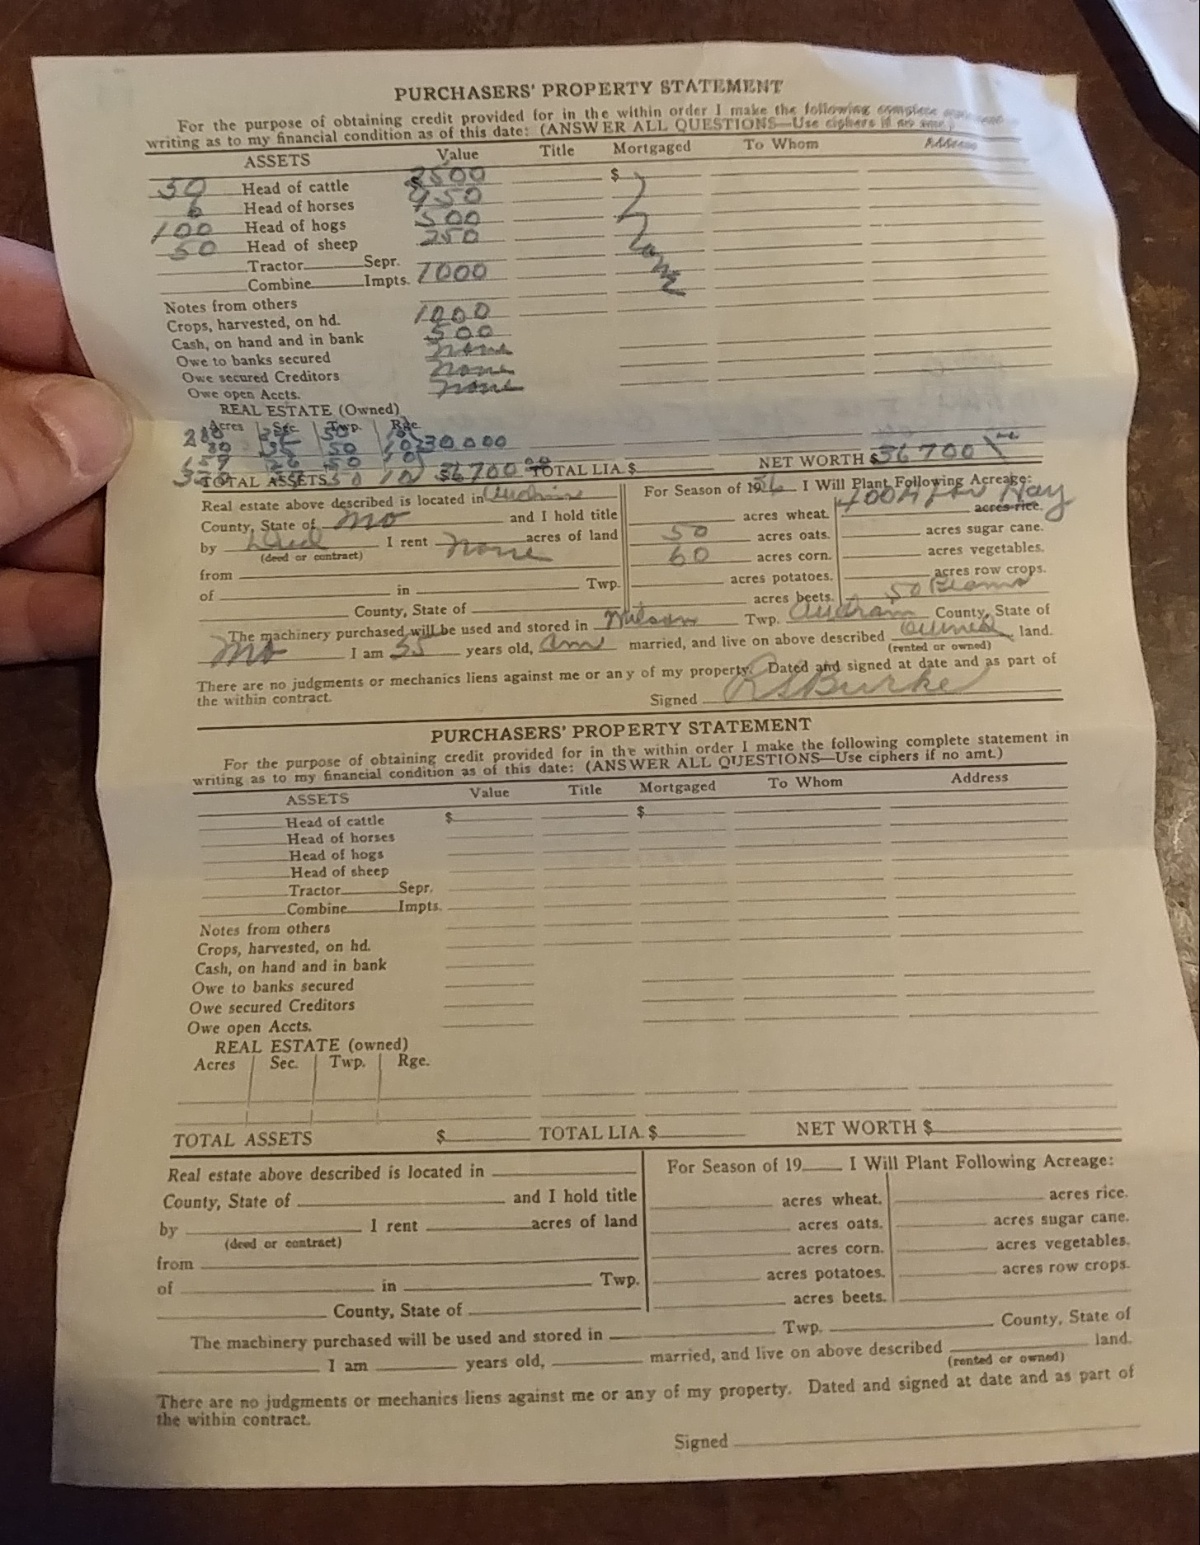 PURCHASERS' PROPERTY STATEMENT
For the purpose of obtaining credit provided for in the within order I make the following complete
writing as to my financial condition as of this date: (ANSWER ALL QUESTIONS—Use ciphers if no amt.)
ASSETS Value Title Mortgaged To Whom
50 Head of cattle 3500 $
6 Head of horses 450
100 Head of hogs 500
50 Head of sheep 250
Tractor Sepr.
Combine Impts. 1000
none
Notes from others
Crops, harvested, on hd. 1000
Cash, on hand and in bank 500
Owe to banks secured none
Owe secured Creditors none
Owe open Accts. none
REAL ESTATE (Owned)
Acres Sec. Twp. Rge.
80 35 50 10 30000
26 50 10
TOTAL ASSETS 36700 00 TOTAL LIA $ NET WORTH $36700
Real estate above described is located in Audrain
County, State of Mo and I hold title
by Deed I rent none acres of land
(deed or contract)
from
of in Twp.
County, State of
For Season of 19 I Will Plant Following Acreage:
acres wheat. Hay acres rice.
50 acres oats. acres sugar cane.
60 acres corn. acres vegetables.
acres potatoes. acres row crops.
acres beets. 50 Beans
The machinery purchased will be used and stored in Wilson Twp. Audrain County, State of
Mo I am 55 years old, am married, and live on above described owned land.
(rented or owned)
There are no judgments or mechanics liens against me or any of my property. Dated and signed at date and as part of
the within contract.
Signed R S Burke
PURCHASERS' PROPERTY STATEMENT
For the purpose of obtaining credit provided for in the within order I make the following complete statement in
writing as to my financial condition as of this date: (ANSWER ALL QUESTIONS—Use ciphers if no amt.)
ASSETS Value Title Mortgaged To Whom Address
Head of cattle $ $
Head of horses
Head of hogs
Head of sheep
Tractor Sepr.
Combine Impts.
Notes from others
Crops, harvested, on hd.
Cash, on hand and in bank
Owe to banks secured
Owe secured Creditors
Owe open Accts.
REAL ESTATE (owned)
Acres Sec. Twp. Rge.
TOTAL ASSETS $ TOTAL LIA $ NET WORTH $
Real estate above described is located in
County, State of and I hold title
by I rent acres of land
(deed or contract)
from
of in Twp.
County, State of
For Season of 19 I Will Plant Following Acreage:
acres wheat. acres rice.
acres oats. acres sugar cane.
acres corn. acres vegetables.
acres potatoes. acres row crops.
acres beets.
The machinery purchased will be used and stored in Twp. County, State of
I am years old, married, and live on above described land.
(rented or owned)
There are no judgments or mechanics liens against me or any of my property. Dated and signed at date and as part of
the within contract.
Signed